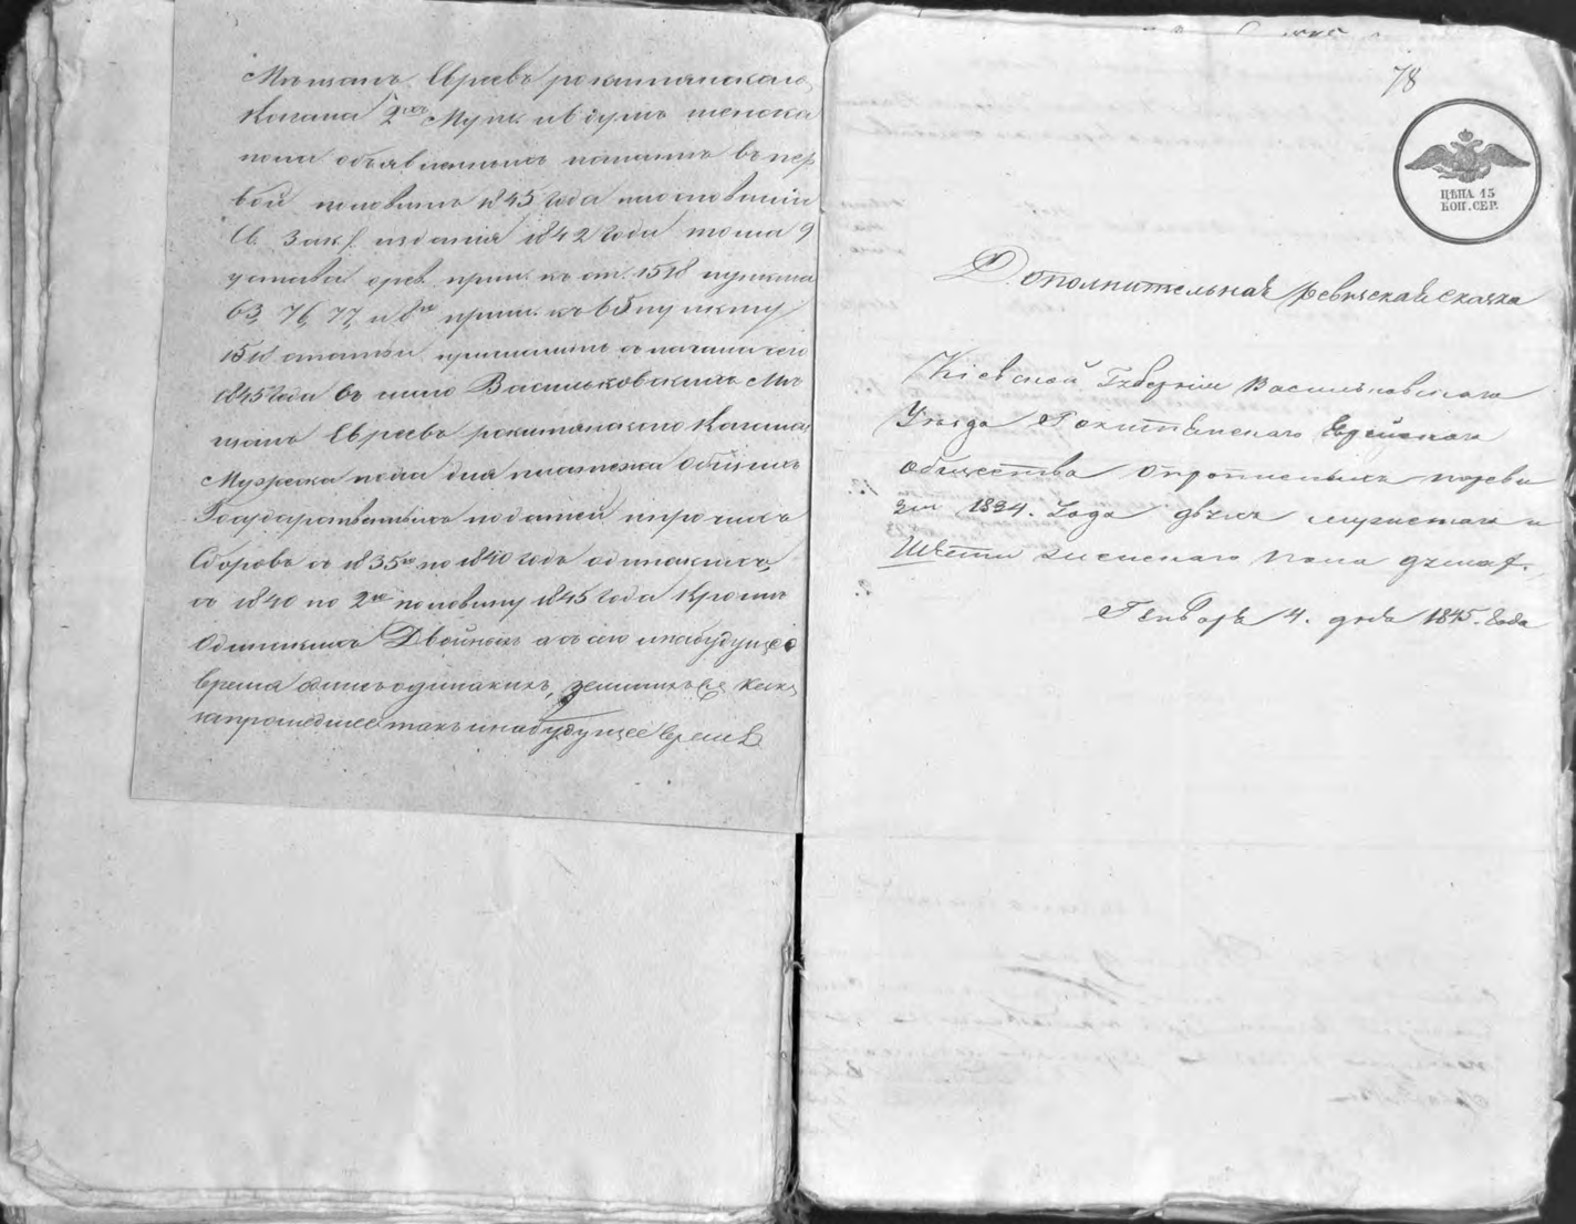 Мѣщанъ Евреевъ рокитянскаго
Кагала 2хъ Муж. и вдупль женска
пола объявленныхъ нашимъ въ пер
вой половинѣ 1845 года на основаніи
Св. Зак. изданія 1842 года тома 9
устава о рев. прим. къ ст. 1518 пункта
63, 76, 77, и 8го прим. къ 65 пункту
1518 статьи причислить съ начала сего
1845 года въ число Васильковскихъ Мѣ
щанъ Евреевъ рокитянскаго Кагала
Мужеска пола для платежа Общихъ
Государственныхъ податей и прочихъ
Сборовъ съ 1835го по 1840 годъ одинакихъ,
съ 1840 по 2ю половину 1845 года Кромѣ
Одинакихъ Двойныхъ а съ сего и на будущее
время одинакихъ, как
за прошедшее такъ и на будущее время
78
ЦѢНА 15
КОП. СЕР.
Дополнительная ревизская сказка
Кіевской Губерніи Васильковскаго
Уѣзда Рокитянскаго Еврейскаго
Общества о прописныхъ по реви
зіи 1834. Года двухъ мужескаго и
Шести женскаго пола душаx.
Генваря 4. дня 1845. Года